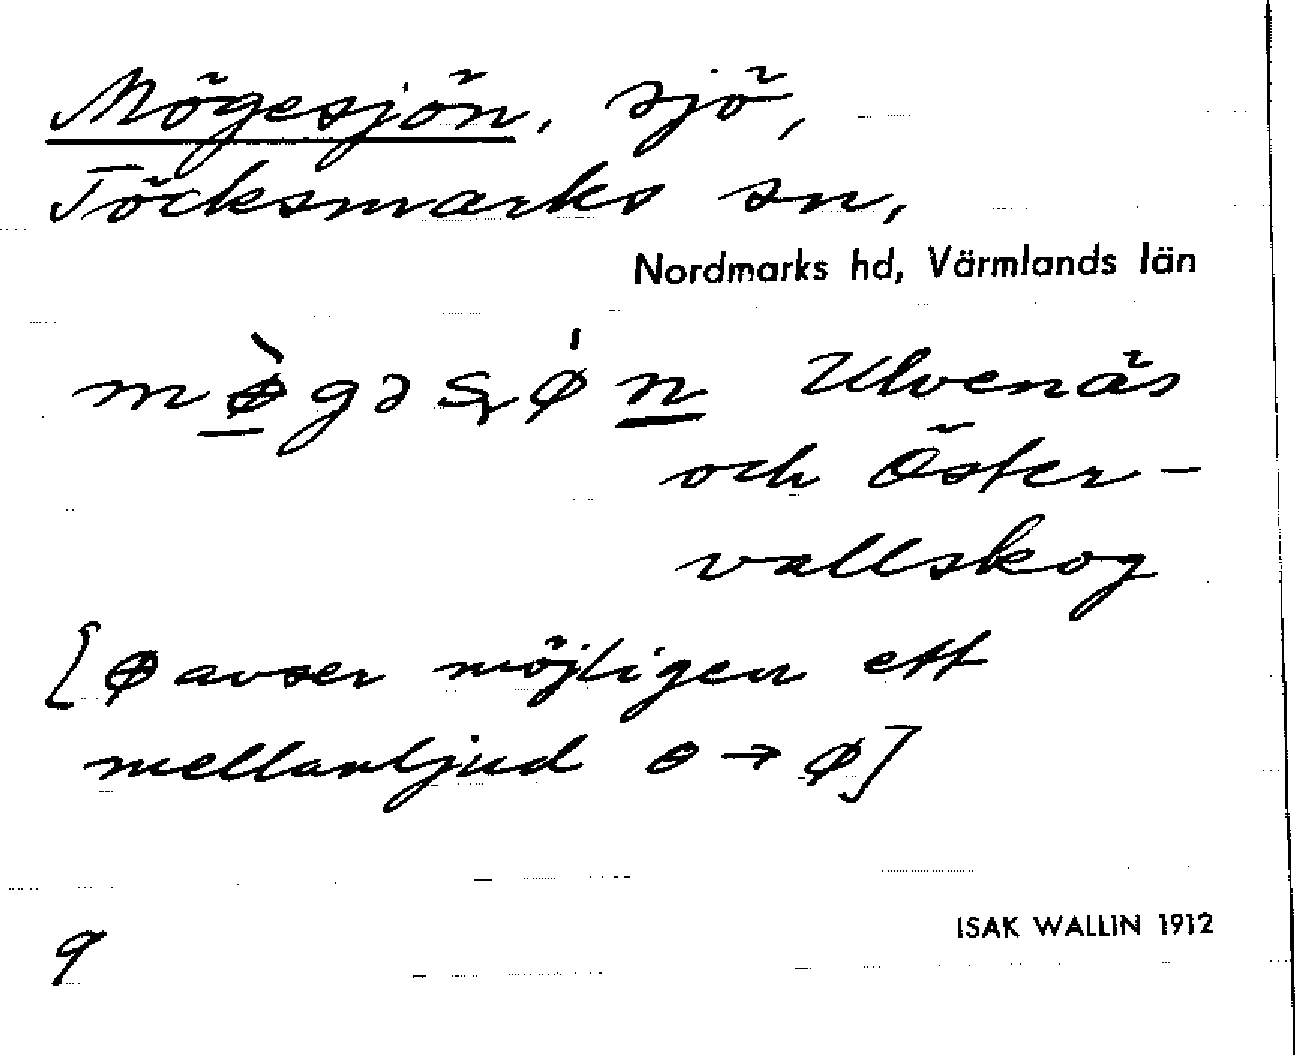 Mögesjön, sjö,
Töcksmarks sn,
Nordmarks hd, Värmlands län
mø̀gəsɟǿn Ulvenäs
och Öster-
vallskog
[ø avser möjligen ett
mellanljud ɵ → ø]
ISAK WALLIN 1912
9